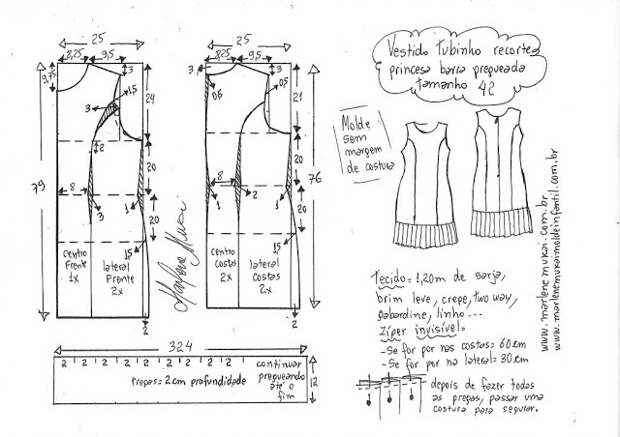 25
8,25
9,5
3
9,75
1,5
3
24
2
79
8
20
3
1
20
15
centro
Frente
1x
lateral
Frente
2x
2
Marlene Mukai
25
8,25
9,5
3
3
0,5
0,5
21
20
76
8
1
2
1
20
15
centro
Costas
2x
lateral
Costas
2x
2
324
2 2 2 2 2 2 2 2 2 2
Pregas = 2 cm profundidade
continuar
pregueando
até o
fim
12
Vestido tubinho recortes
princesa barra pregueada
tamanho 42
Molde
sem
margem
de costura
Tecido = 1,20m de sarja,
brim leve, crepe, two way,
gabardine, linho...
Ziper invisível =
-Se for por nas costas = 60cm
-Se for por na lateral = 30cm
depois de fazer todas
as pregas, passar uma
costura para segurar.
www.marlenemukai.com.br
www.marlenemukaimoldeinfantil.com.br